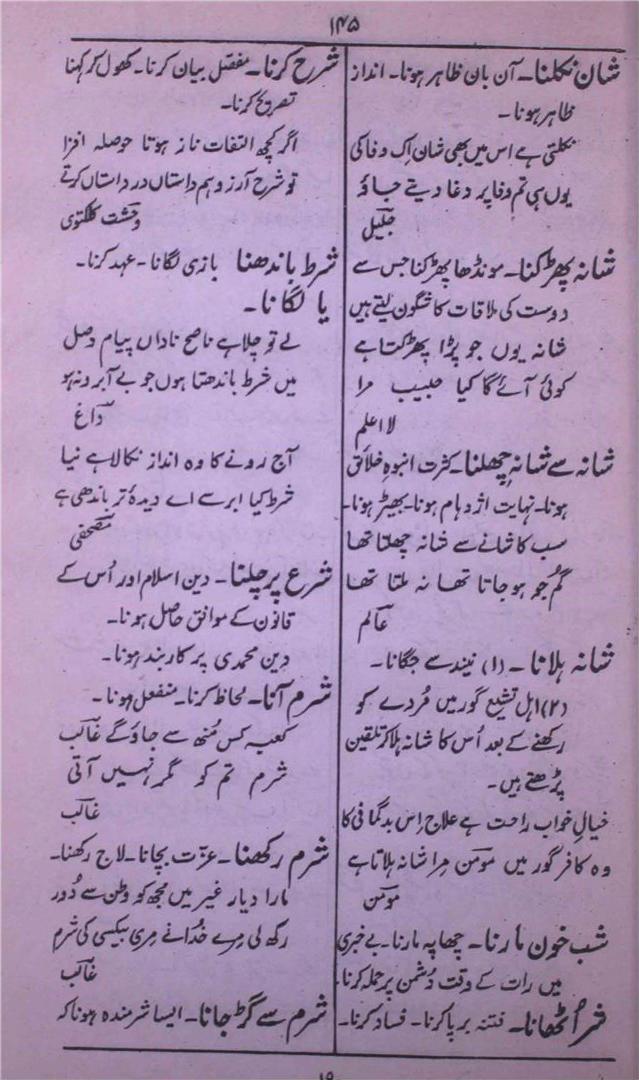 ۱۴۵
شان نکلنا۔ آن بان ظاہر ہونا۔ انداز
ظاہر ہونا۔
نکلتی ہے اس میں بھی شان اک وفا کی
یوں ہی تم وفا پر دغا دیتے جاؤ
جلیل
شانہ پھڑکنا۔ مونڈھا پھڑکنا جس سے
دوست کی ملاقات کا شگون لیتے ہیں
شانہ یوں جو پڑا پھڑکتا ہے
کوئی آئے گا کیا حبیب مرا
لااعلم
شانہ سے شانہ چھلنا۔ کثرت انبوہِ خلائق
ہونا۔ نہایت اژدہام ہونا۔ بھیڑ ہونا۔
سب کا شانے سے شانہ چھلتا تھا
گم جو ہو جاتا تھا نہ ملتا تھا
عالم
شانہ ہلانا۔ (۱) نیند سے جگانا۔
(۲) اہل تشیع گور میں مُردے کو
رکھنے کے بعد اُس کا شانہ ہلا کر تلقین
پڑھتے ہیں۔
خیالِ خواب راحت ہے علاج اس بدگمانی کا
وہ کافر گور میں مومن مرا شانہ ہلاتا ہے
مومن
شب خون مارنا۔ چھاپہ مارنا۔ بے خبری
میں رات کے وقت دُشمن پر حملہ کرنا۔
شر اُٹھانا۔ فتنہ برپا کرنا۔ فساد کرنا۔
شرح کرنا۔ مفصّل بیان کرنا۔ کھول کر کہنا
تصریح کرنا۔
اگر کچھ التفات ناز ہوتا حوصلہ افزا
تو شرح آرزو ہم داستاں در داستاں کرتے
وحشت کلکتوی
شرط باندھنا بازی لگانا۔ عہد کرنا۔
یا لگانا۔
لے تو چلا ہے ناصح ناداں پیام وصل
میں شرط باندھتا ہوں جو بے آبرو نہ ہو
داغ
آج رونے کا وہ انداز نکالا ہے نیا
شرط کیا ابر سے اے دیدۂ تر باندھی ہے
مصحفی
شرع پر چلنا۔ دین اسلام اور اُس کے
قانون کے موافق حاصل ہونا۔
دین محمدی پر کاربند ہونا۔
شرم آنا۔ لحاظ کرنا۔ منفعل ہونا۔
کعبہ کس مُنھ سے جاؤ گے غالب
شرم تم کو مگر نہیں آتی
غالب
شرم رکھنا۔ عزّت بچانا۔ لاج رکھنا۔
مارا دیار غیر میں مجھ کو وطن سے دُور
رکھ لی مرے خُدا نے مری بیکسی کی شرم
غالب
شرم سے گڑ جانا۔ ایسا شرمندہ ہونا کہ